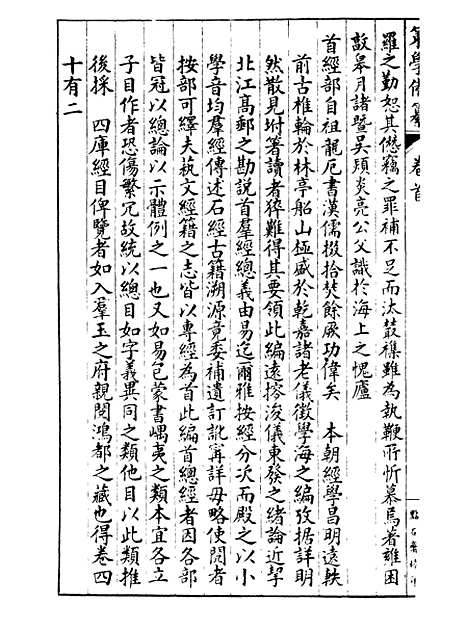 策學備纂 卷首
羅之勤恕其僭竊之罪補不足而汰叢襍雖為執鞭所忻慕焉著雍困
敦皋月諸暨吳熲炎亮公父識於海上之愧廬
首經部自祖龍厄書漢儒掇拾焚餘厥功偉矣 本朝經學昌明遠軼
前古椎輪於林亭船山極盛於乾嘉諸老儀徵學海之編攷据詳明
然散見坿箸讀者猝難得其要領此編遠摉浚儀東發之緒論近挈
北江高郵之勘說首羣經總義由易迄爾雅按經分次而殿之以小
學音均羣經傳述石經古籍溯源竟委補遺訂訛寧詳毋略使閱者
按部可繹夫蓺文經籍之志皆以專經為首此編首總經者因各部
皆冠以總論以示體例之一也又如易包蒙書嵎夷之類本宜各立
子目作者恐傷繁冗故統以總目如字義異同之類他目以此類推
後採 四庫經目俾覽者如入羣玉之府親閱鴻都之藏也得卷四
十有二
點石齋